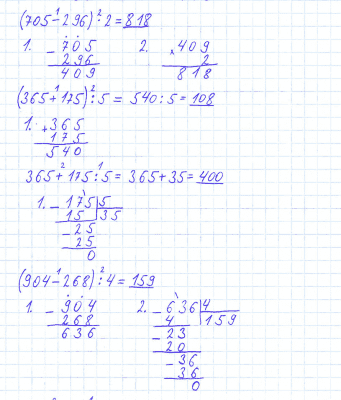 (705-296):2=818
1. -705 2. ×409
296 2
409 818
(365+175):5= 540:5=108
1. +365
175
540
365+175:5=365+35=400
1. -175|5
15 |35
-25
25
0
(904-268):4=159
1. -904 2. -636|4
268 4 |159
636 -23
20
-36
36
0